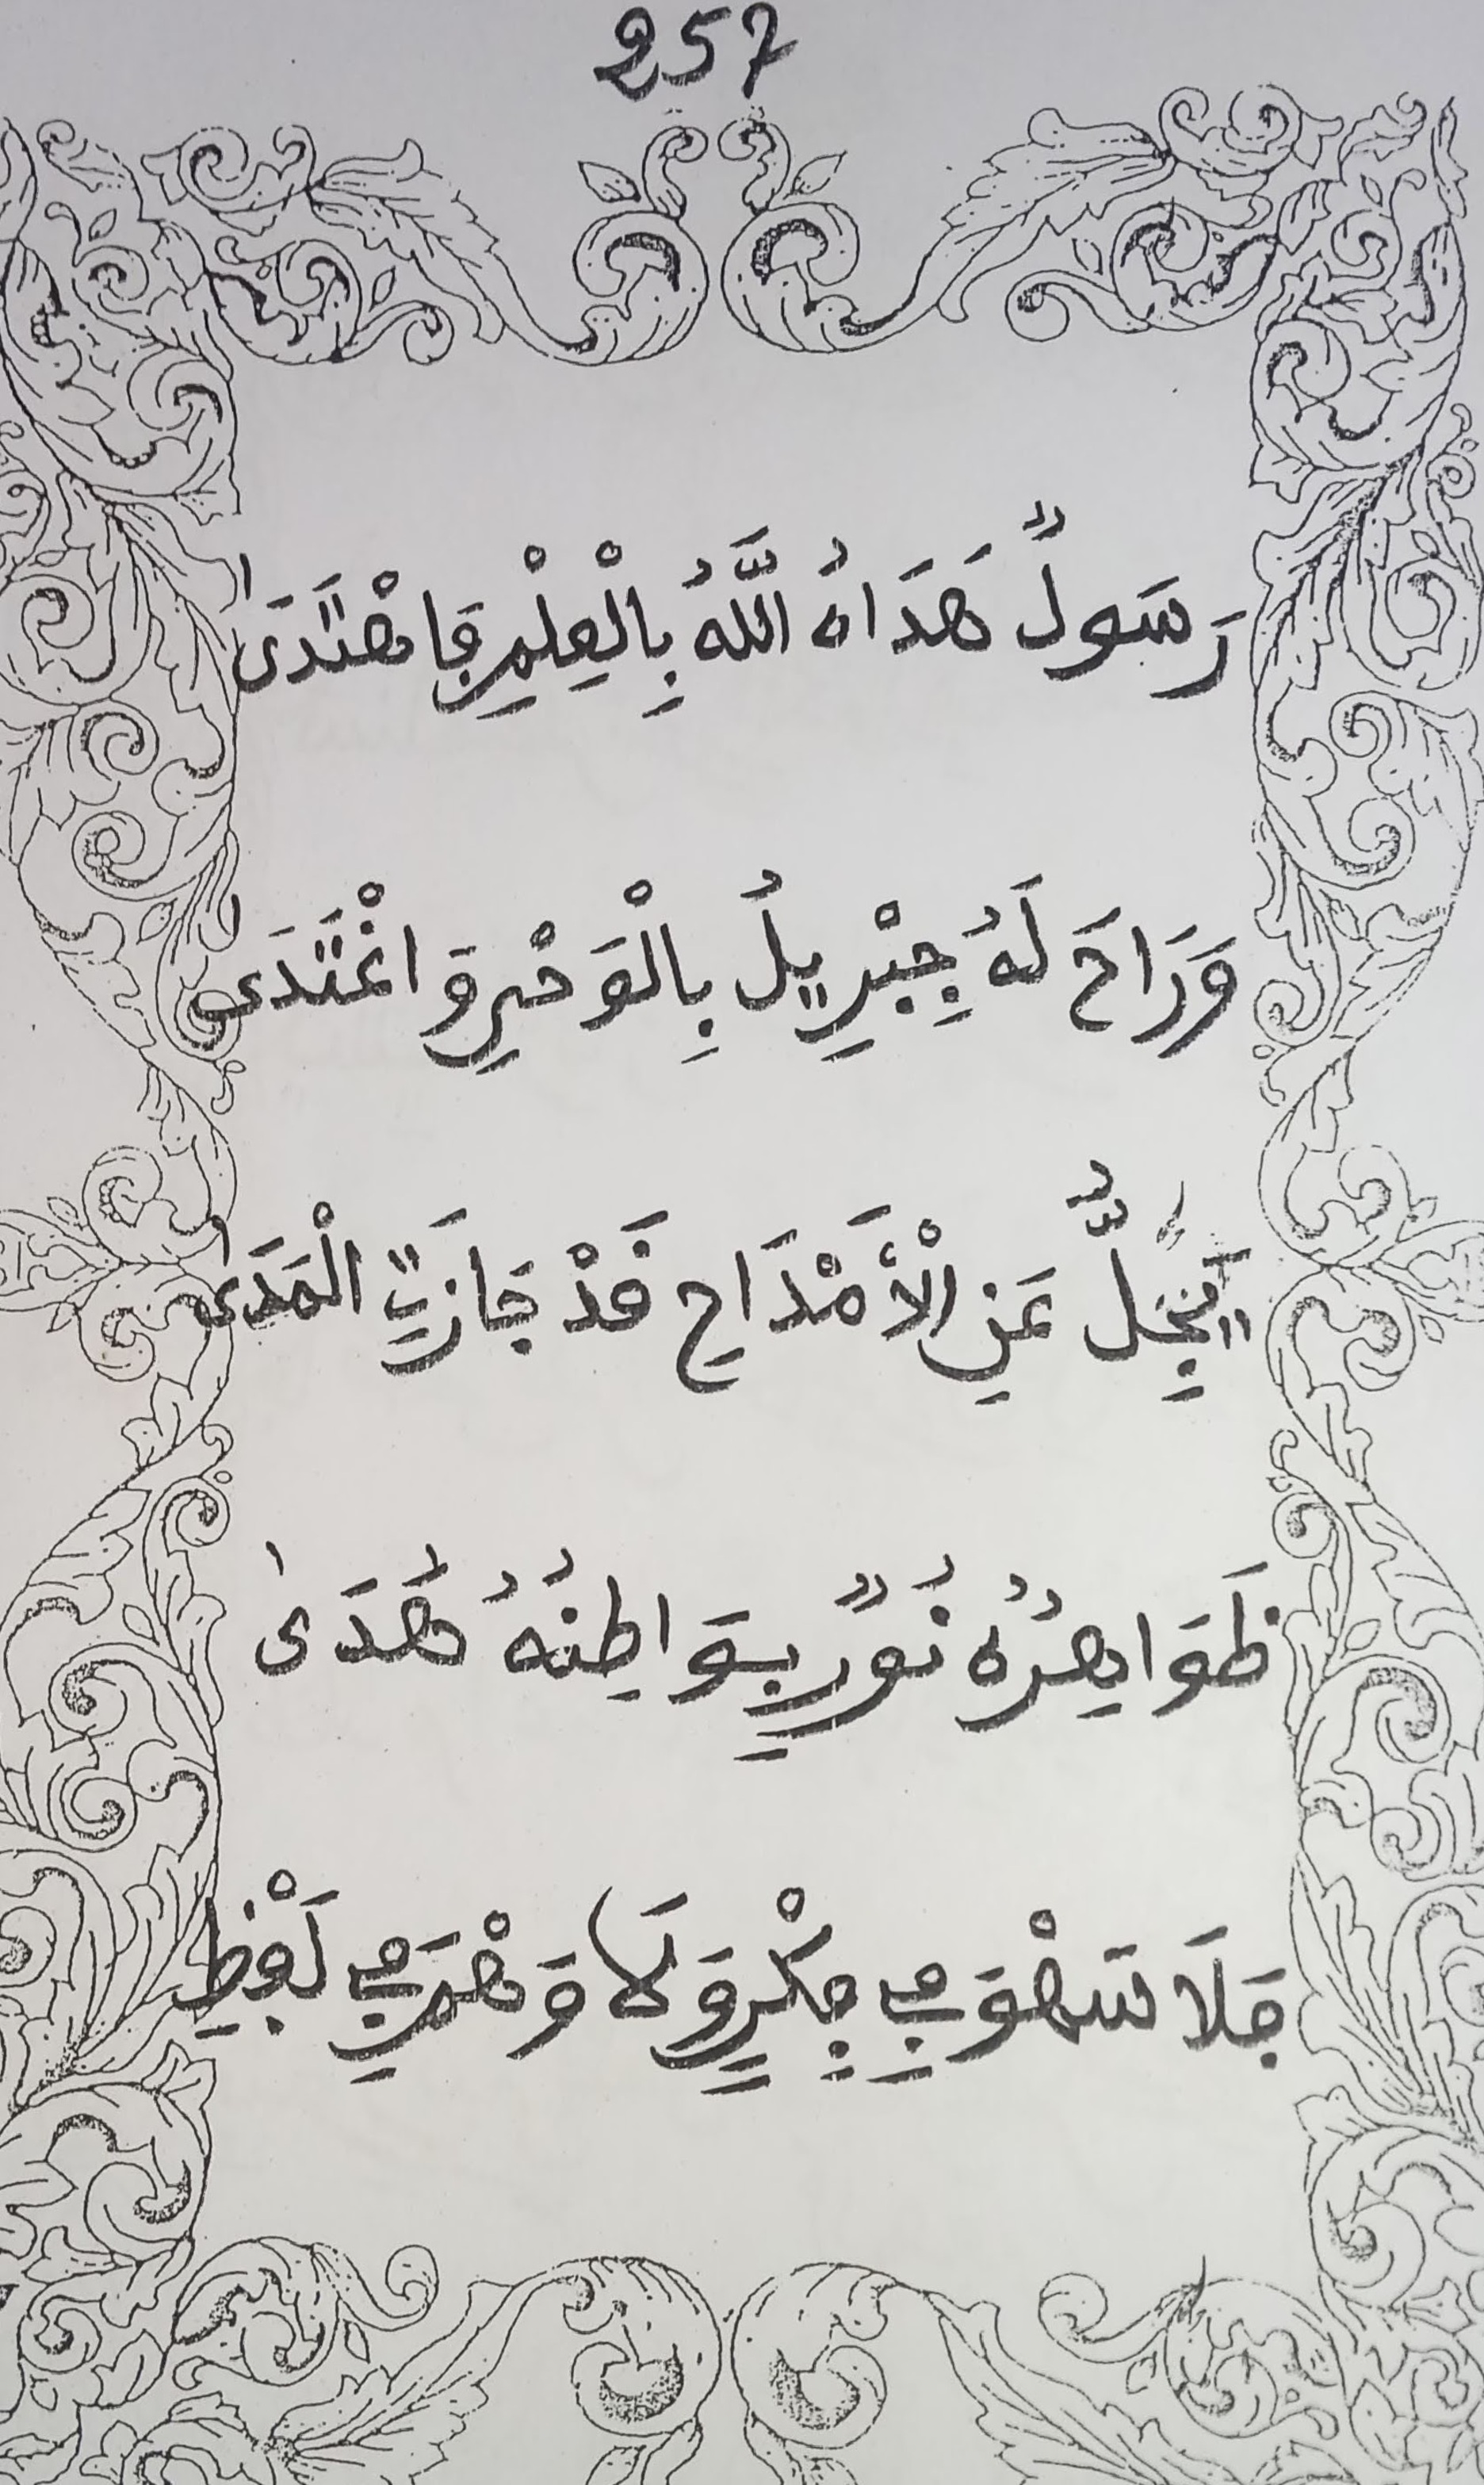 257
رَسُولٌ هَدَاهُ اللَّهُ بِالْعِلْمِ فَاهْتَدَىٰ
وَرَاحَ لَهُ جِبْرِيلُ بِالْوَحْيِ وَاغْتَدَى
يَجِلُّ عَنِ الْأَمْدَاحِ قَدْ جَازَتِ الْمَدَىٰ
ظَوَاهِرُهُ نُورٌ بَوَاطِنُهُ هُدَىٰ
فَلَا سَهْوَ فِي فِكْرٍ وَلَا وَهْمَ فِي لَفْظِ